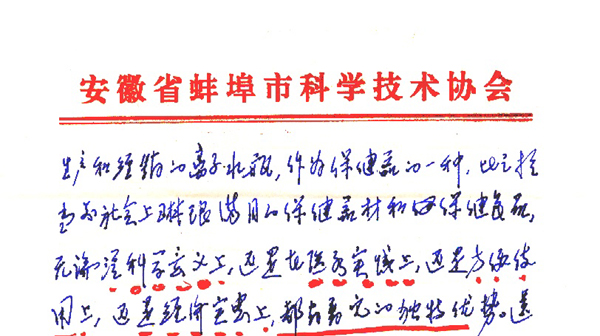 安徽省蚌埠市科学技术协会
生产和经销的离子水瓶,作为保健品的一种,比之于
当前社会上琳琅满目的保健器材和保健食品,
无论从科学意义上,还是在医疗实践上,还是方便使
用上,还是经济实惠上,都有着它的独特优势。这